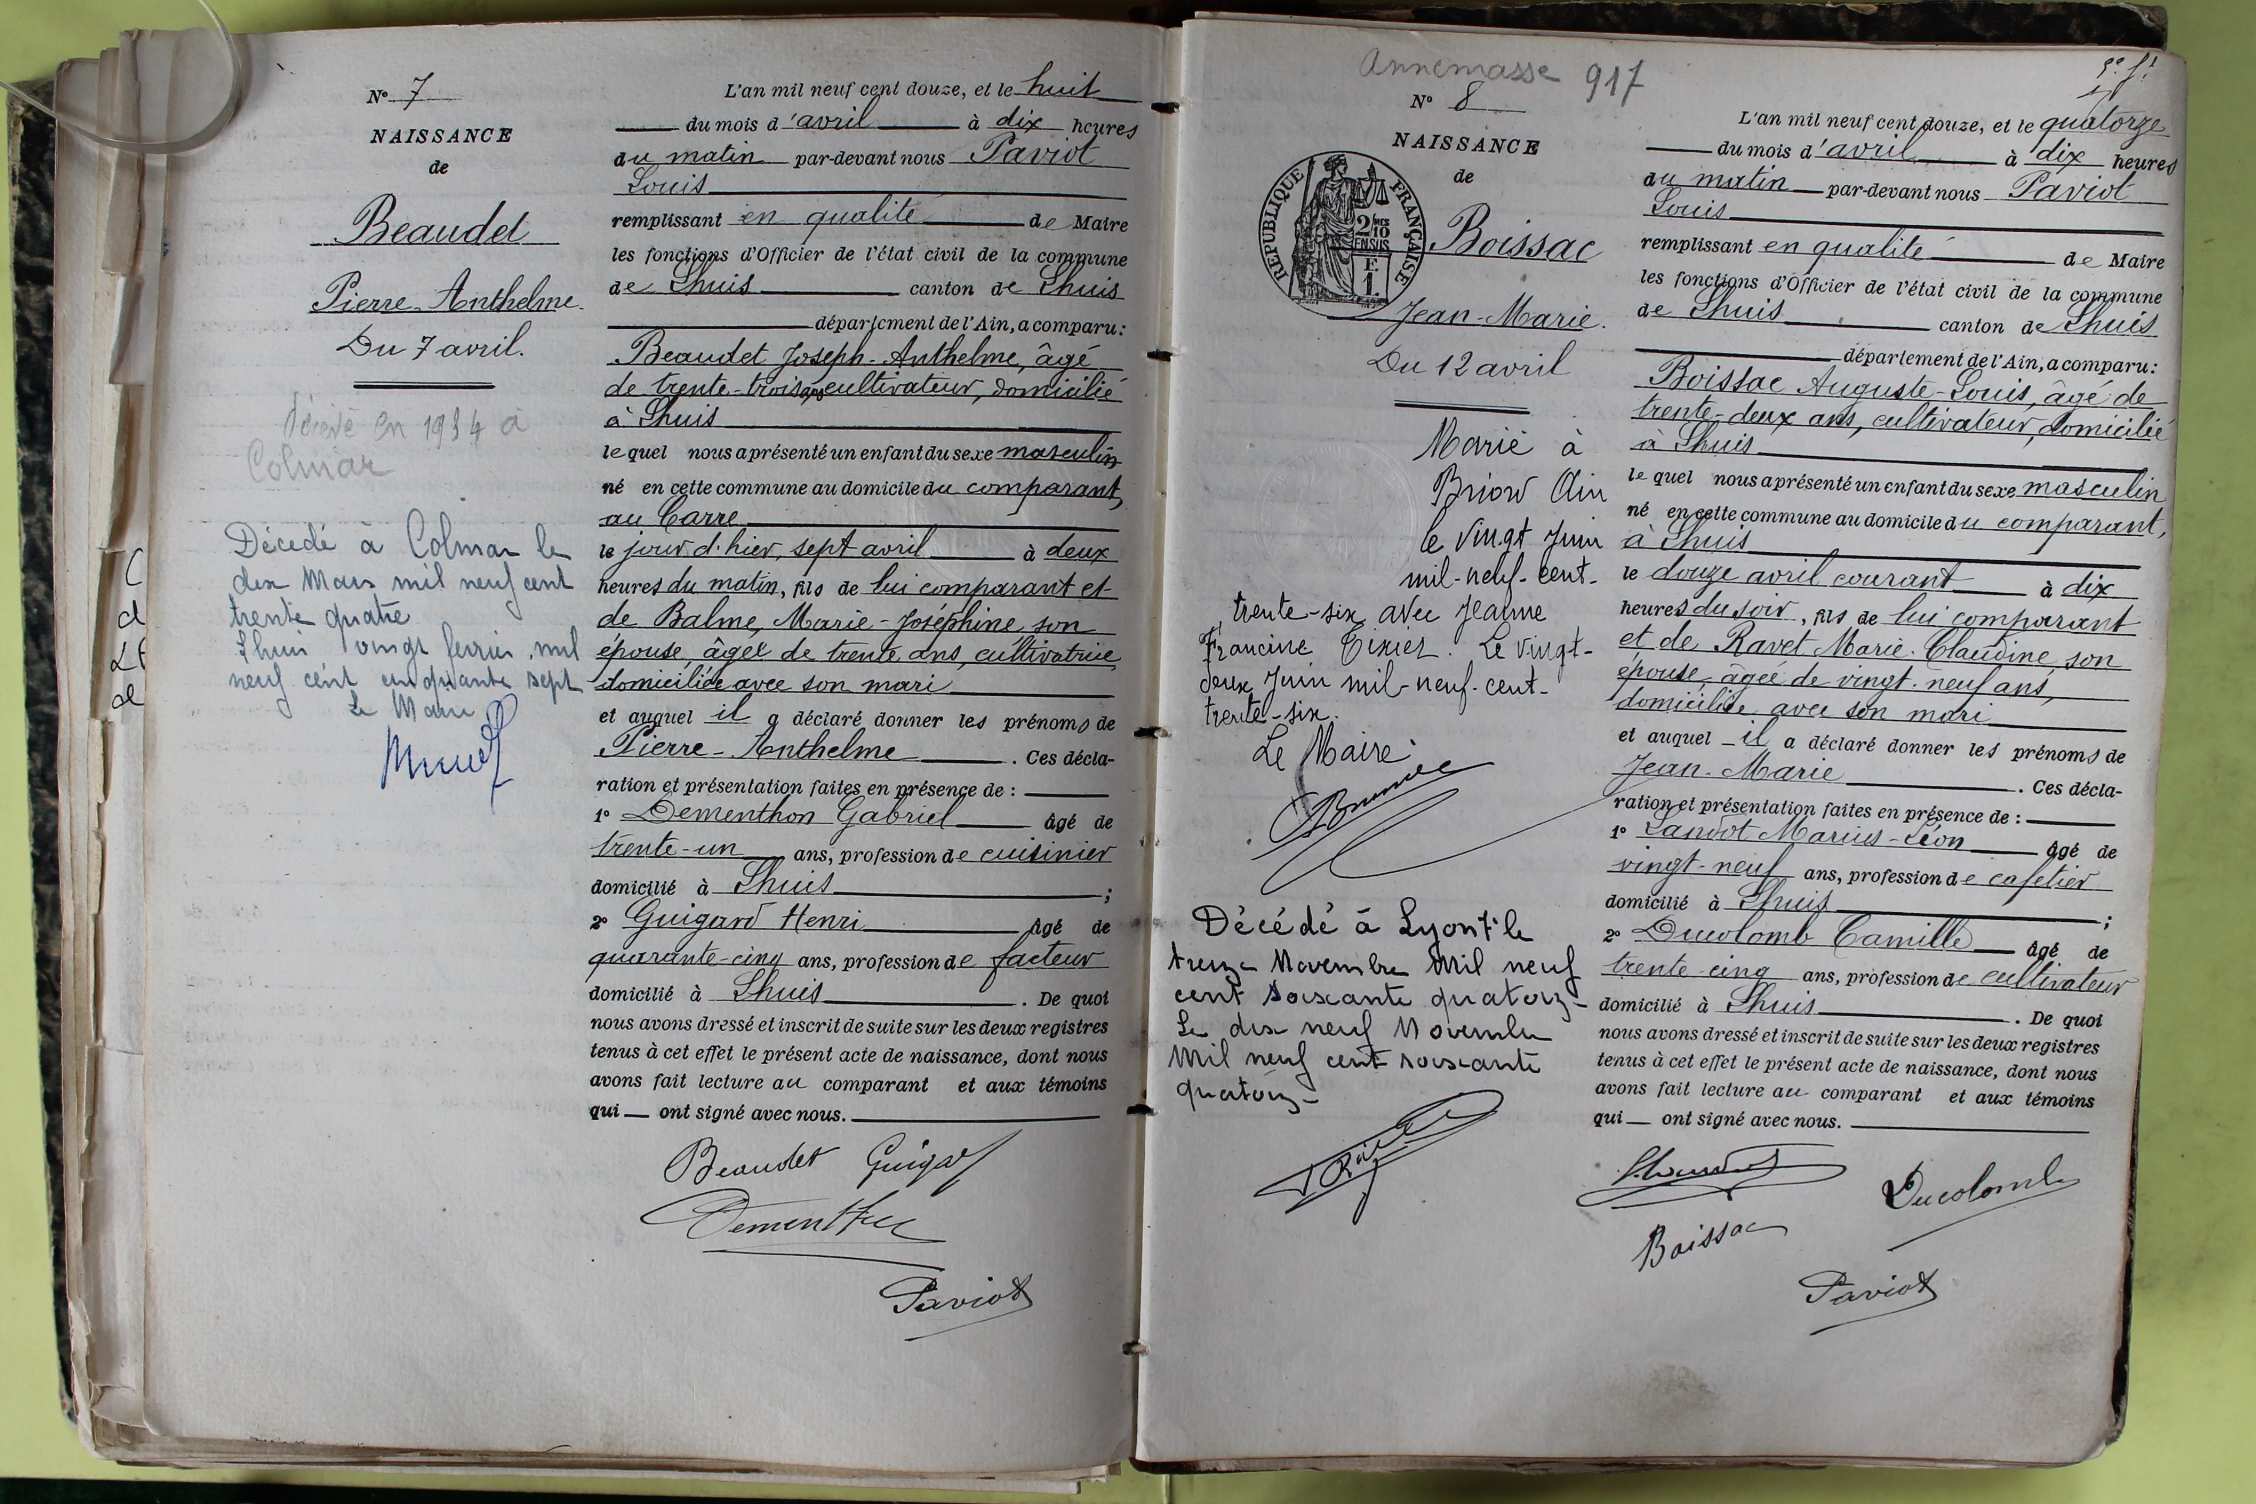 N° 7
NAISSANCE
de
Beaudet
Pierre-Anthelme.
Du 7 avril.
Décédé en 1934 à
Colmar
Décédé à Colmar le
dix Mars mil neuf cent
trente quatre
Lhuis vingt fevrier mil
neuf cent cinquante sept
Le Maire
L'an mil neuf cent douze, et le huit
du mois d'avril à dix heures
du matin par-devant nous Paviot
Louis
remplissant en qualité de Maire
les fonctions d'Officier de l'état civil de la commune
de Lhuis canton de Lhuis
département de l'Ain, a comparu:
Beaudet Joseph-Anthelme, âgé
de trente-trois ans cultivateur, domicilié
à Lhuis
le quel nous a présenté un enfant du sexe masculin
né en cette commune au domicile du comparant,
au Carre
le jour d'hier, sept avril à deux
heures du matin, fils de lui comparant et
de Balme, Marie-Joséphine, son
épouse, âgée de trente ans, cultivatrice,
domiciliée avec son mari
et auquel il a déclaré donner les prénoms de
Pierre-Anthelme. Ces décla-
ration et présentation faites en présence de :
1° Dementhon Gabriel âgé de
trente-un ans, profession de cuisinier
domicilié à Lhuis ;
2° Guigard Henri âgé de
quarante-cinq ans, profession de facteur
domicilié à Lhuis. De quoi
nous avons dressé et inscrit de suite sur les deux registres
tenus à cet effet le présent acte de naissance, dont nous
avons fait lecture au comparant et aux témoins
qui ont signé avec nous.
Beaudet Guigard
Dementhon
Paviot
Annemasse 917
N° 8
NAISSANCE
de
REPUBLIQUE FRANÇAISE
2/10
EN SUS
F
1
Boissac
Jean-Marie.
Du 12 avril
Marié à
Briord Ain
le vingt Juin
mil-neuf-cent-
trente-six avec Jeanne
Francine Texier. Le vingt-
deux Juin mil-neuf-cent-
trente-six.
Le Maire
Décédé à Lyon 7e le
treize Novembre Mil neuf
cent soixante quatorze
Le dix neuf Novembre
Mil neuf cent soixante
quatorze
L'an mil neuf cent douze, et le quatorze
du mois d'avril à dix heures
du matin par-devant nous Paviot
Louis
remplissant en qualité de Maire
les fonctions d'Officier de l'état civil de la commune
de Lhuis canton de Lhuis
département de l'Ain, a comparu:
Boissac Auguste-Louis, âgé de
trente-deux ans, cultivateur, domicilié
à Lhuis
le quel nous a présenté un enfant du sexe masculin
né en cette commune au domicile du comparant,
à Lhuis
le douze avril courant à dix
heures du soir, fils de lui comparant
et de Ravet Marie-Claudine, son
épouse, âgée de vingt-neuf ans,
domiciliée avec son mari
et auquel il a déclaré donner les prénoms de
Jean-Marie. Ces décla-
ration et présentation faites en présence de :
1° Landot Marius-Léon âgé de
vingt-neuf ans, profession de cafetier
domicilié à Lhuis ;
2° Ducolomb Camille âgé de
trente cinq ans, profession de cultivateur
domicilié à Lhuis. De quoi
nous avons dressé et inscrit de suite sur les deux registres
tenus à cet effet le présent acte de naissance, dont nous
avons fait lecture au comparant et aux témoins
qui ont signé avec nous.
Ducolomb
Boissac
Paviot